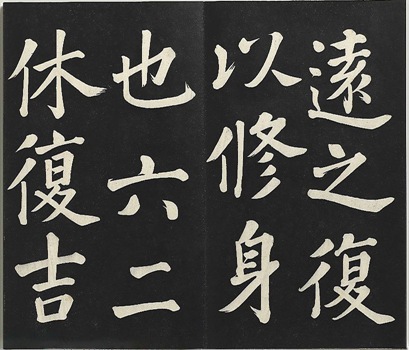 遠之復
以修身
也六二
休復吉